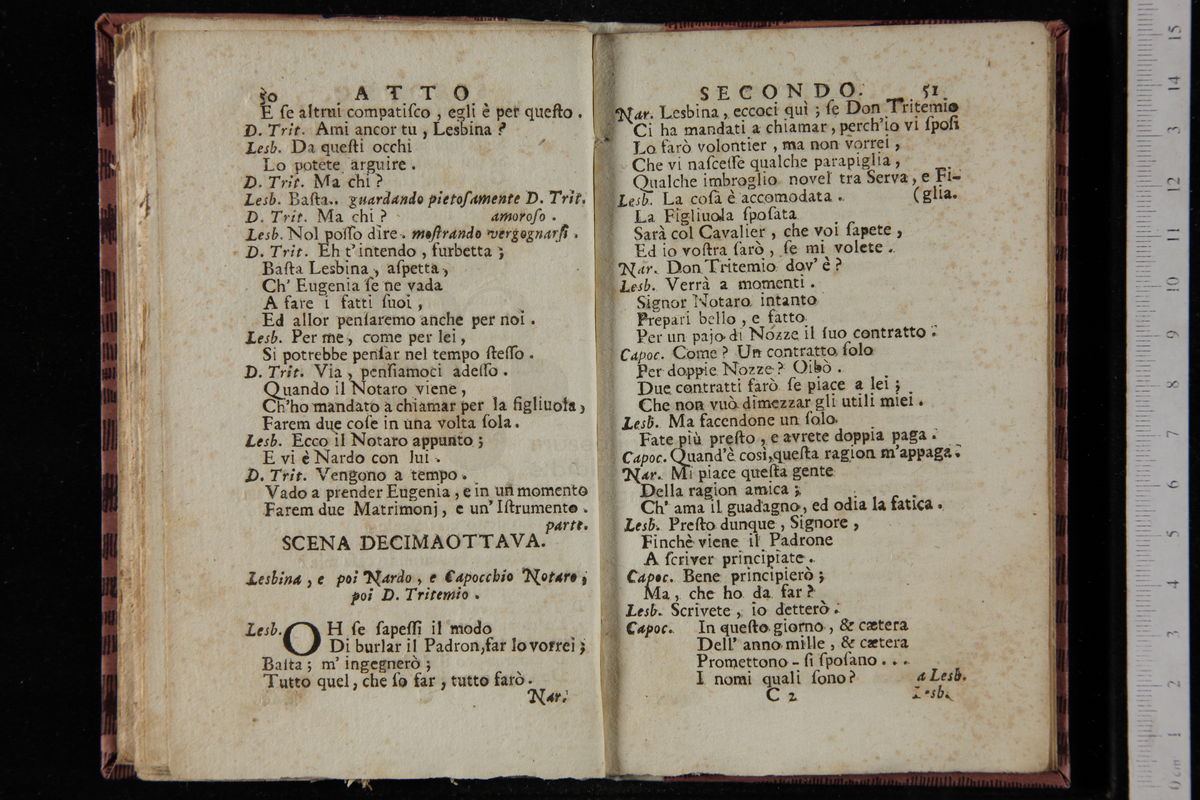 50 ATTO
E ſe altrui compatiſco , egli è per queſto .
D. Trit. Ami ancor tu , Lesbina ?
Lesb. Da queſti occhi
Lo potete arguire .
D. Trit. Ma chi ?
Lesb. Baſta.. guardando pietoſamente D. Trit.
D. Trit. Ma chi ? amoroſo .
Lesb. Nol poſſo dire . moſtrando vergognarſi .
D. Trit. Eh t'intendo , furbetta ;
Baſta Lesbina , aſpetta ,
Ch' Eugenia ſe ne vada
A fare i fatti ſuoi ,
Ed allor penſaremo anche per noi .
Lesb. Per me , come per lei ,
Si potrebbe penſar nel tempo ſteſſo .
D. Trit. Via , penſiamoci adeſſo .
Quando il Notaro viene ,
Ch'ho mandato a chiamar per la figliuola ,
Farem due coſe in una volta ſola .
Lesb. Ecco il Notaro appunto ;
E vi è Nardo con lui .
D. Trit. Vengono a tempo .
Vado a prender Eugenia , e in un momento
Farem due Matrimonj , e un' Iſtrumento .
parte.
SCENA DECIMAOTTAVA.
Lesbina , e poi Nardo , e Capocchio Notaro ;
poi D. Tritemio .
Lesb. OH ſe ſapeſſi il modo
Di burlar il Padron,far lo vorrei ;
Baſta ; m' ingegnerò ;
Tutto quel , che ſo far , tutto farò .
Nar.
SECONDO. 51
Nar. Lesbina , eccoci quì ; ſe Don Tritemio
Ci ha mandati a chiamar , perch'io vi ſpoſi
Lo farò volontier , ma non vorrei ,
Che vi naſceſſe qualche parapiglia ,
Qualche imbroglio novel tra Serva , e Fi-
Lesb. La coſa è accomodata . (glia.
La Figliuola ſpoſata
Sarà col Cavalier , che voi ſapete ,
Ed io voſtra ſarò , ſe mi volete .
Nar. Don Tritemio dov' è ?
Lesb. Verrà a momenti .
Signor Notaro intanto
Prepari bello , e fatto
Per un pajo di Nozze il ſuo contratto .
Capoc. Come ? Un contratto ſolo
Per doppie Nozze ? Oibò .
Due contratti farò ſe piace a lei ;
Che non vuò dimezzar gli utili miei .
Lesb. Ma facendone un ſolo
Fate più preſto , e avrete doppia paga .
Capoc. Quand'è così,queſta ragion m'appaga.
Nar. Mi piace queſta gente
Della ragion amica ;
Ch' ama il guadagno , ed odia la fatica .
Lesb. Preſto dunque , Signore ,
Finchè viene il Padrone
A ſcriver principiate .
Capoc. Bene principierò ;
Ma , che ho da far ?
Lesb. Scrivete , io detterò .
Capoc. In queſto giorno , & cætera
Dell' anno mille , & cætera
Promettono - ſi ſpoſano . . .
I nomi quali ſono ? a Lesb.
C 2 Lesb.